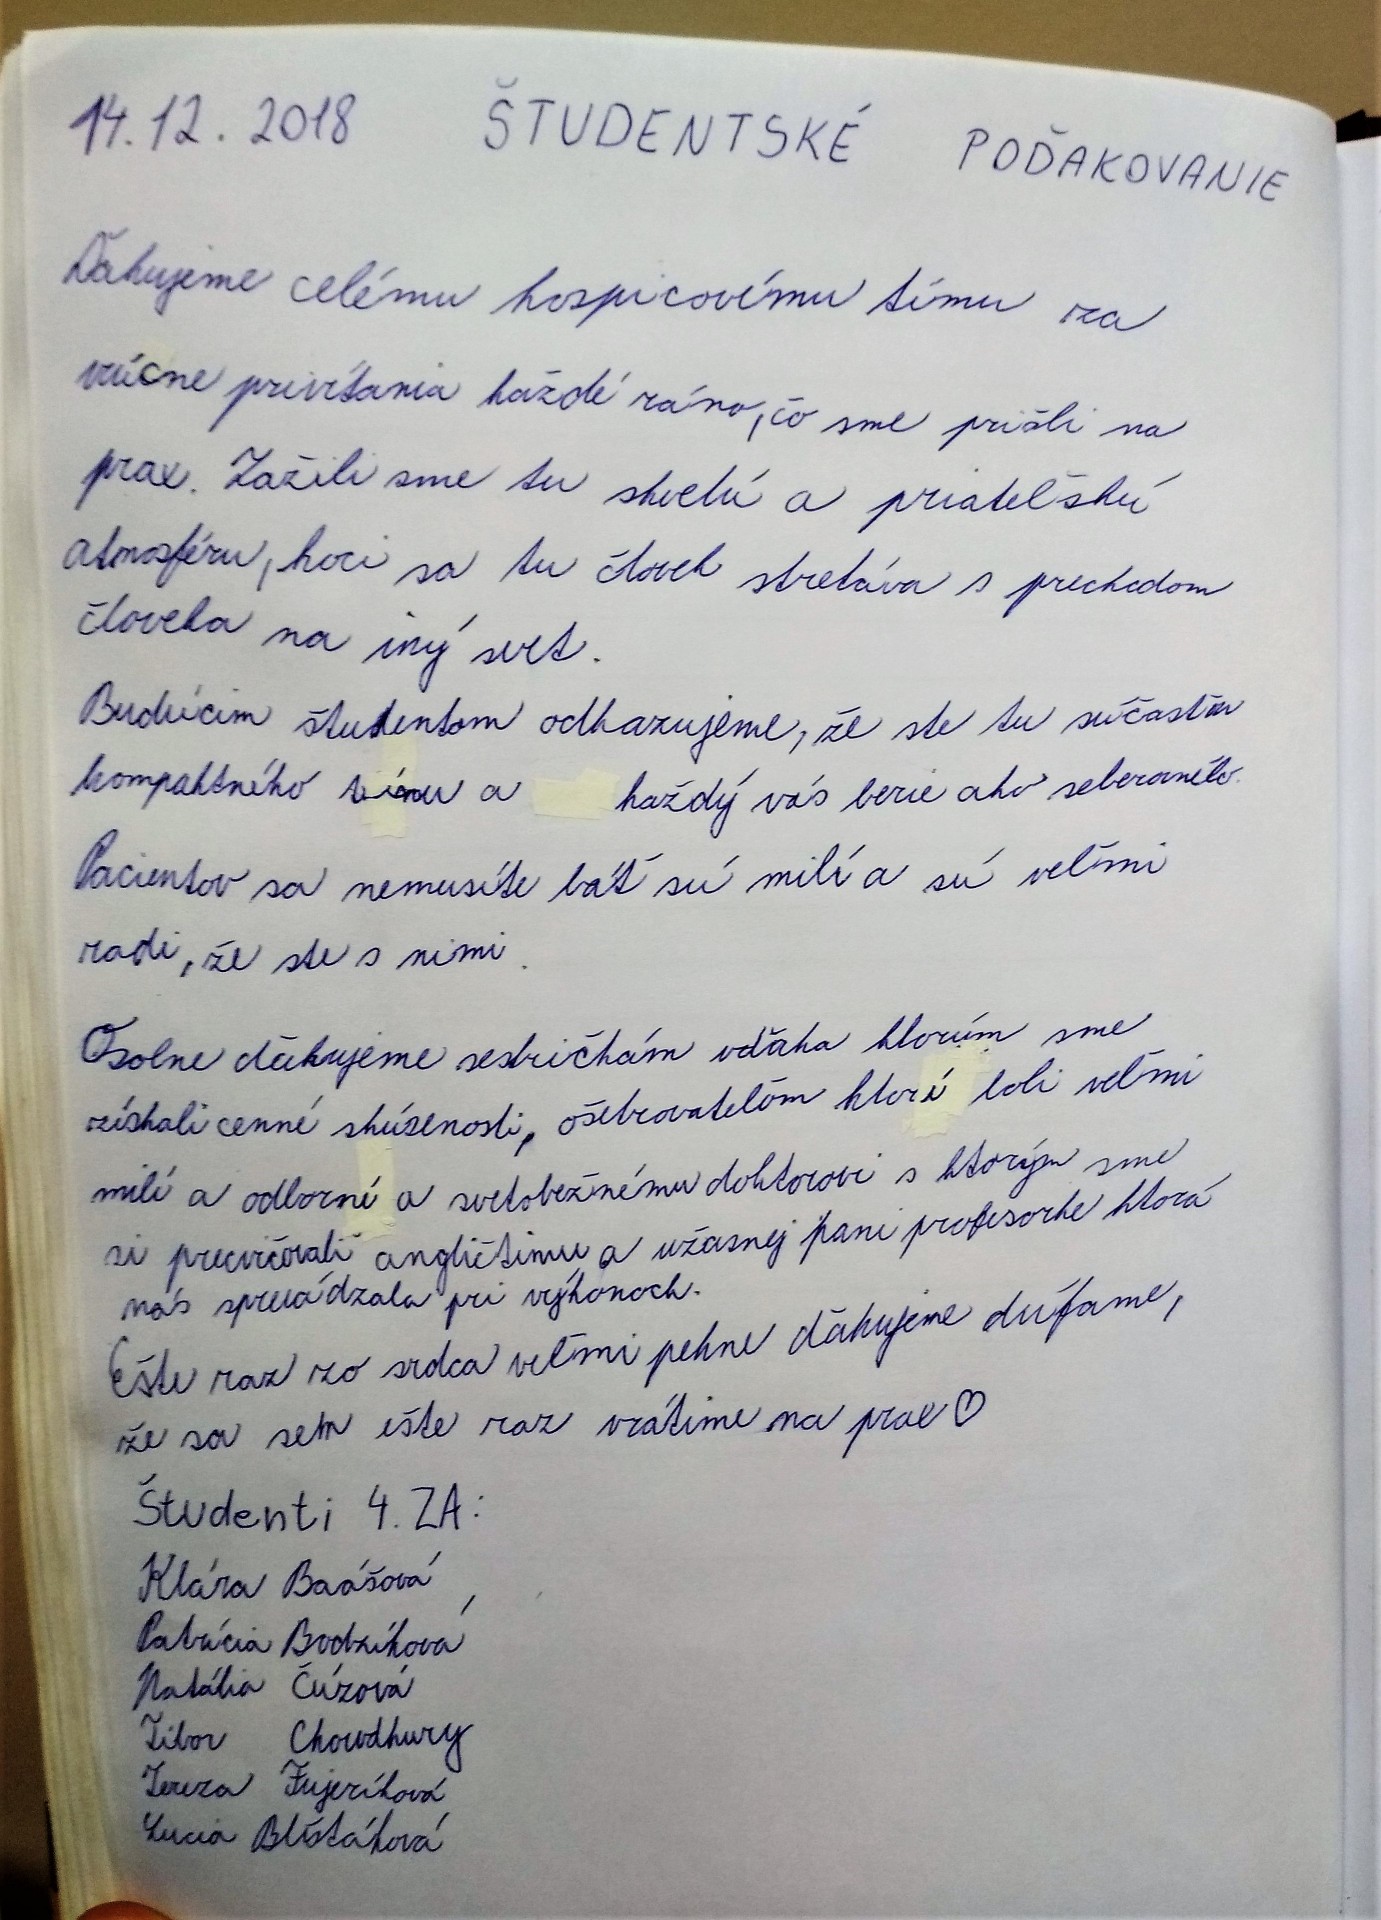 14.12.2018 ŠTUDENTSKÉ POĎAKOVANIE
Ďakujeme celému hospicovému tímu za
vrúcne privítania každé ráno, čo sme prišli na
prax. Zažili sme tu skvelú a priateľskú
atmosféru, hoci sa tu človek stretáva s prechodom
človeka na iný svet.
Budúcim študentom odkazujeme, že ste tu súčasťou
kompaktného tímu a každý vás berie ako seberovného.
Pacientov sa nemusíte báť sú milí a sú veľmi
radi, že ste s nimi.
Osobne ďakujeme sestričkám vďaka ktorým sme
získali cenné skúsenosti, ošetrovateľom ktorí boli veľmi
milí a odborní a svetobežnému doktorovi s ktorým sme
si precvičovali angličtinu a úžasnej pani profesorke ktorá
nás sprevádzala pri výkonoch.
Ešte raz zo srdca veľmi pekne ďakujeme dúfame,
že sa sem ešte raz vrátime na prax♡
Študenti 4.ZA:
Klára Baášová
Patrícia Bodzíková
Natália Čúzová
Tibor Chowdhury
Tereza Fujeríková
Lucia Blištáková